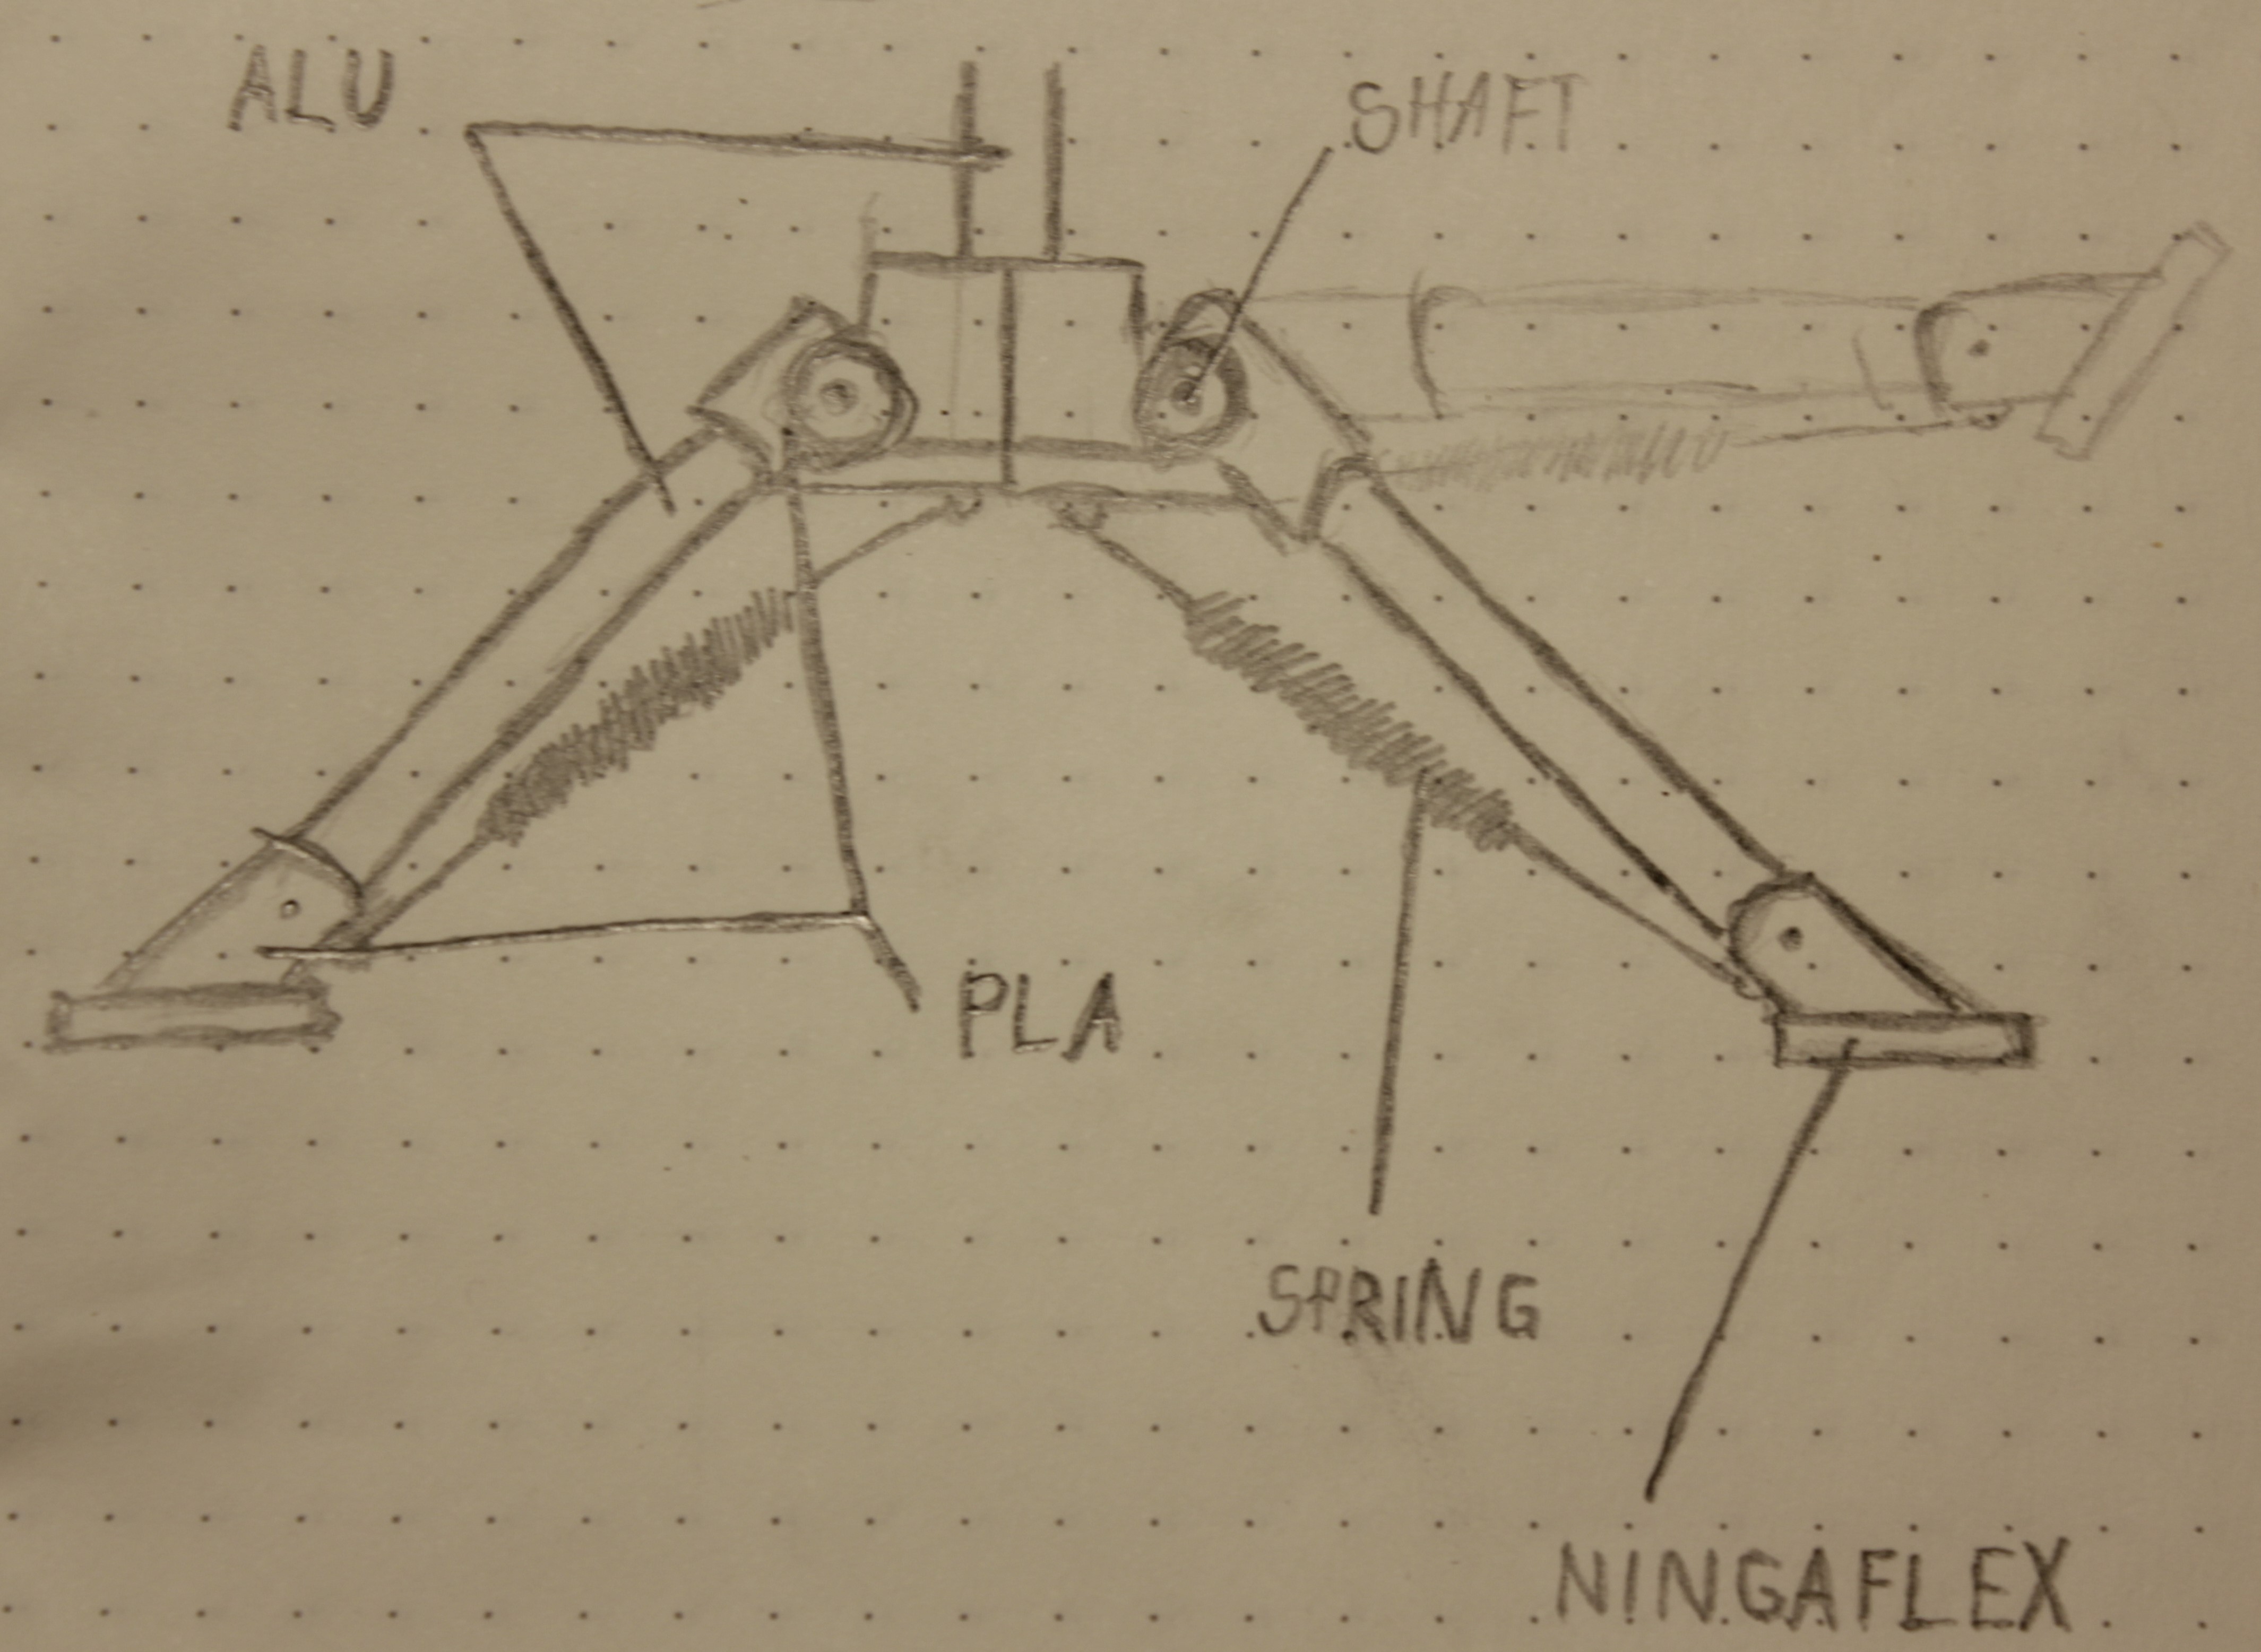 ALU
SHAFT
PLA
SPRING
NINGAFLEX